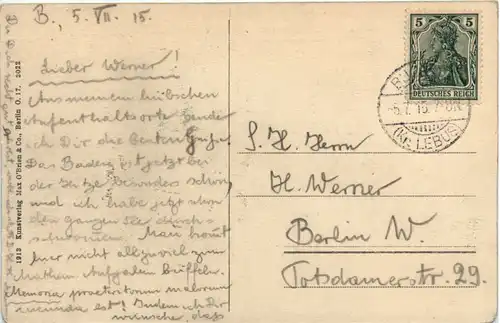 B., 5. VII. 15.
Lieber Werner!
Aus meinem hübschen
Aufenthaltsorte sende
ich Dir die besten Grüße.
Das Baden ist jetzt bei
der Hitze besonders schön,
und ich habe jetzt schon
den ganzen See durch-
schwommen. Man braucht
hier nicht allzuviel zum
Mathem. Aufgaben büffeln.
Memoria praeteritorum malorum
iucunda est! Indem ich Dir
wünsche, daß
1913 Kunstverlag Max O'Brien & Co., Berlin O. 17. 2022
5 5
DEUTSCHES REICH
5.7.15. 7-8N.
(Kr. LEBUS)
S. H. Herrn
H. Werner
Berlin W.
Potsdamerstr. 29.